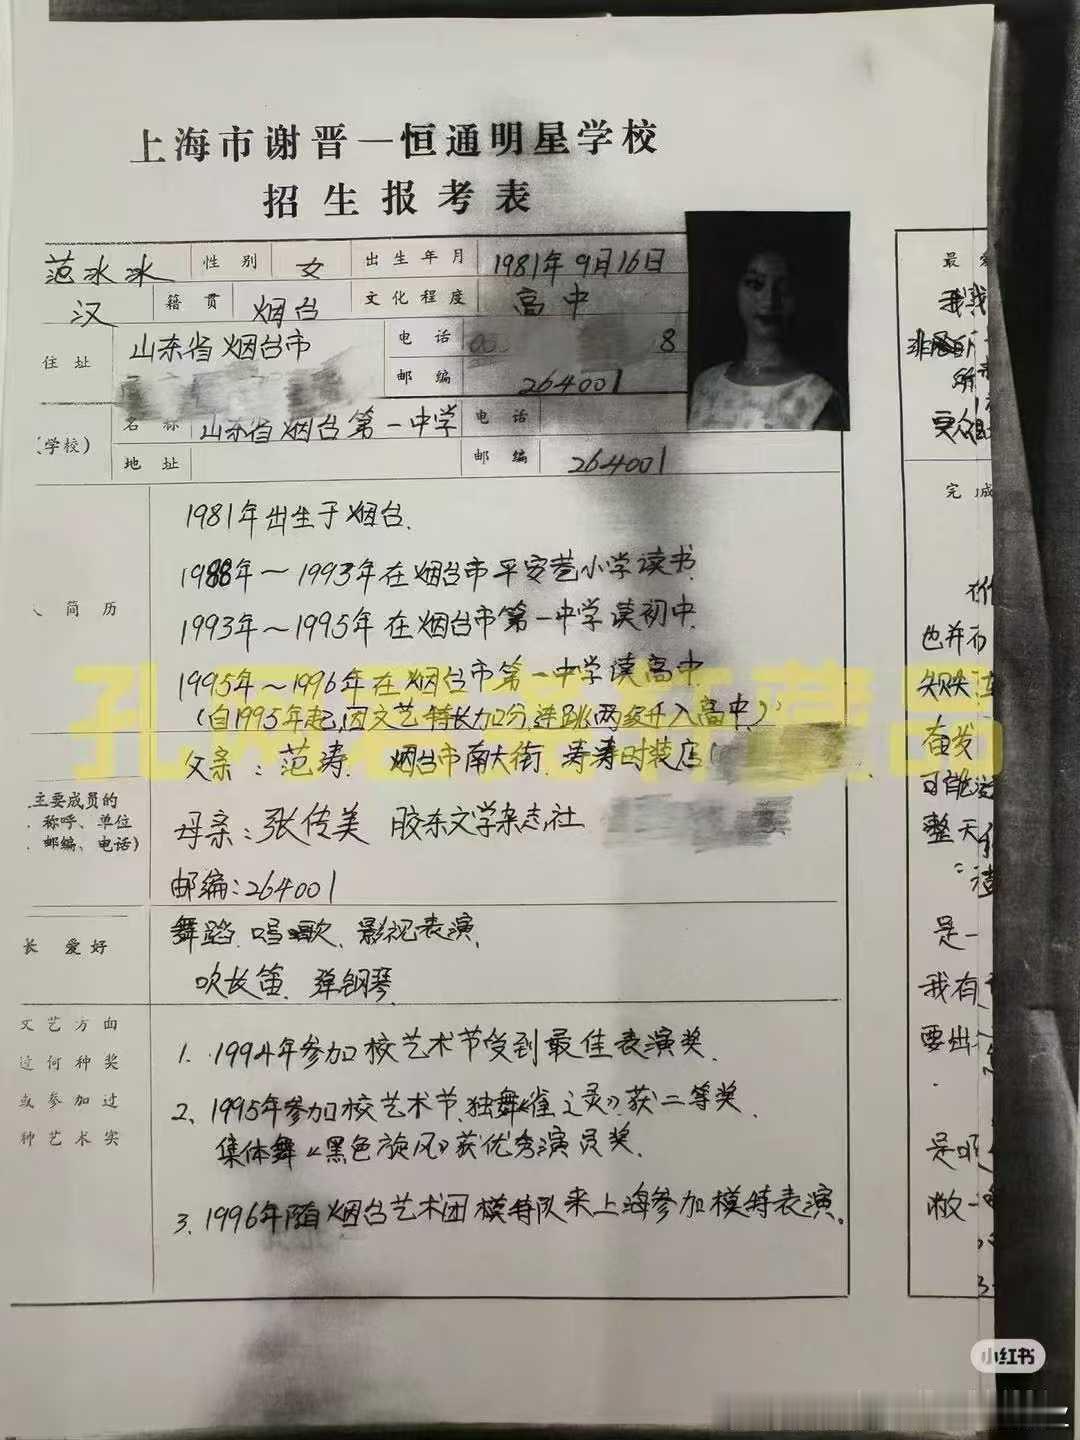 上海市谢晋—恒通明星学校
招生报考表
范冰冰 性别 女 出生年月 1981年9月16日
汉 籍贯 烟台 文化程度 高中
住址 山东省烟台市 电话 8
邮编 264001
(学校) 名称 山东省烟台第一中学 电话
地址 邮编 264001
简历
1981年出生于烟台.
1988年～1993年在烟台市平安巷小学读书.
1993年～1995年在烟台市第一中学读初中.
1995年～1996年在烟台市第一中学读高中.
(自1995年起,因文艺特长加分,连跳两级升入高中.)
主要成员的
称呼、单位
邮编、电话)
父亲：范涛. 烟台市南大街 涛涛时装店(
母亲：张传美 胶东文学杂志社
邮编：264001
长爱好
舞蹈.唱歌.影视表演,
吹长笛.弹钢琴.
文艺方面
过何种奖
或参加过
种艺术实
1. 1994年参加校艺术节受到最佳表演奖.
2. 1995年参加校艺术节.独舞《雀之灵》获二等奖.
集体舞《黑色旋风》获优秀演员奖.
3. 1996年随烟台艺术团模特队来上海参加模特表演。
最
完成
也并不
奋发
可能
整天
是一
我有
要出
是
藏品
小红书